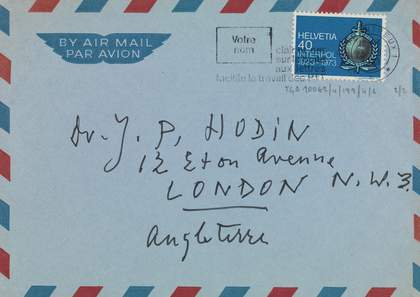 BY AIR MAIL
PAR AVION
Votre
nom
facilite le travail des PTT
HELVETIA
40
INTERPOL
1923-1973
TGA 20062/4/199/4/6 2/2
Dr. J. P. HODIN
12 Eton Avenue
LONDON N.W.3.
Angleterre